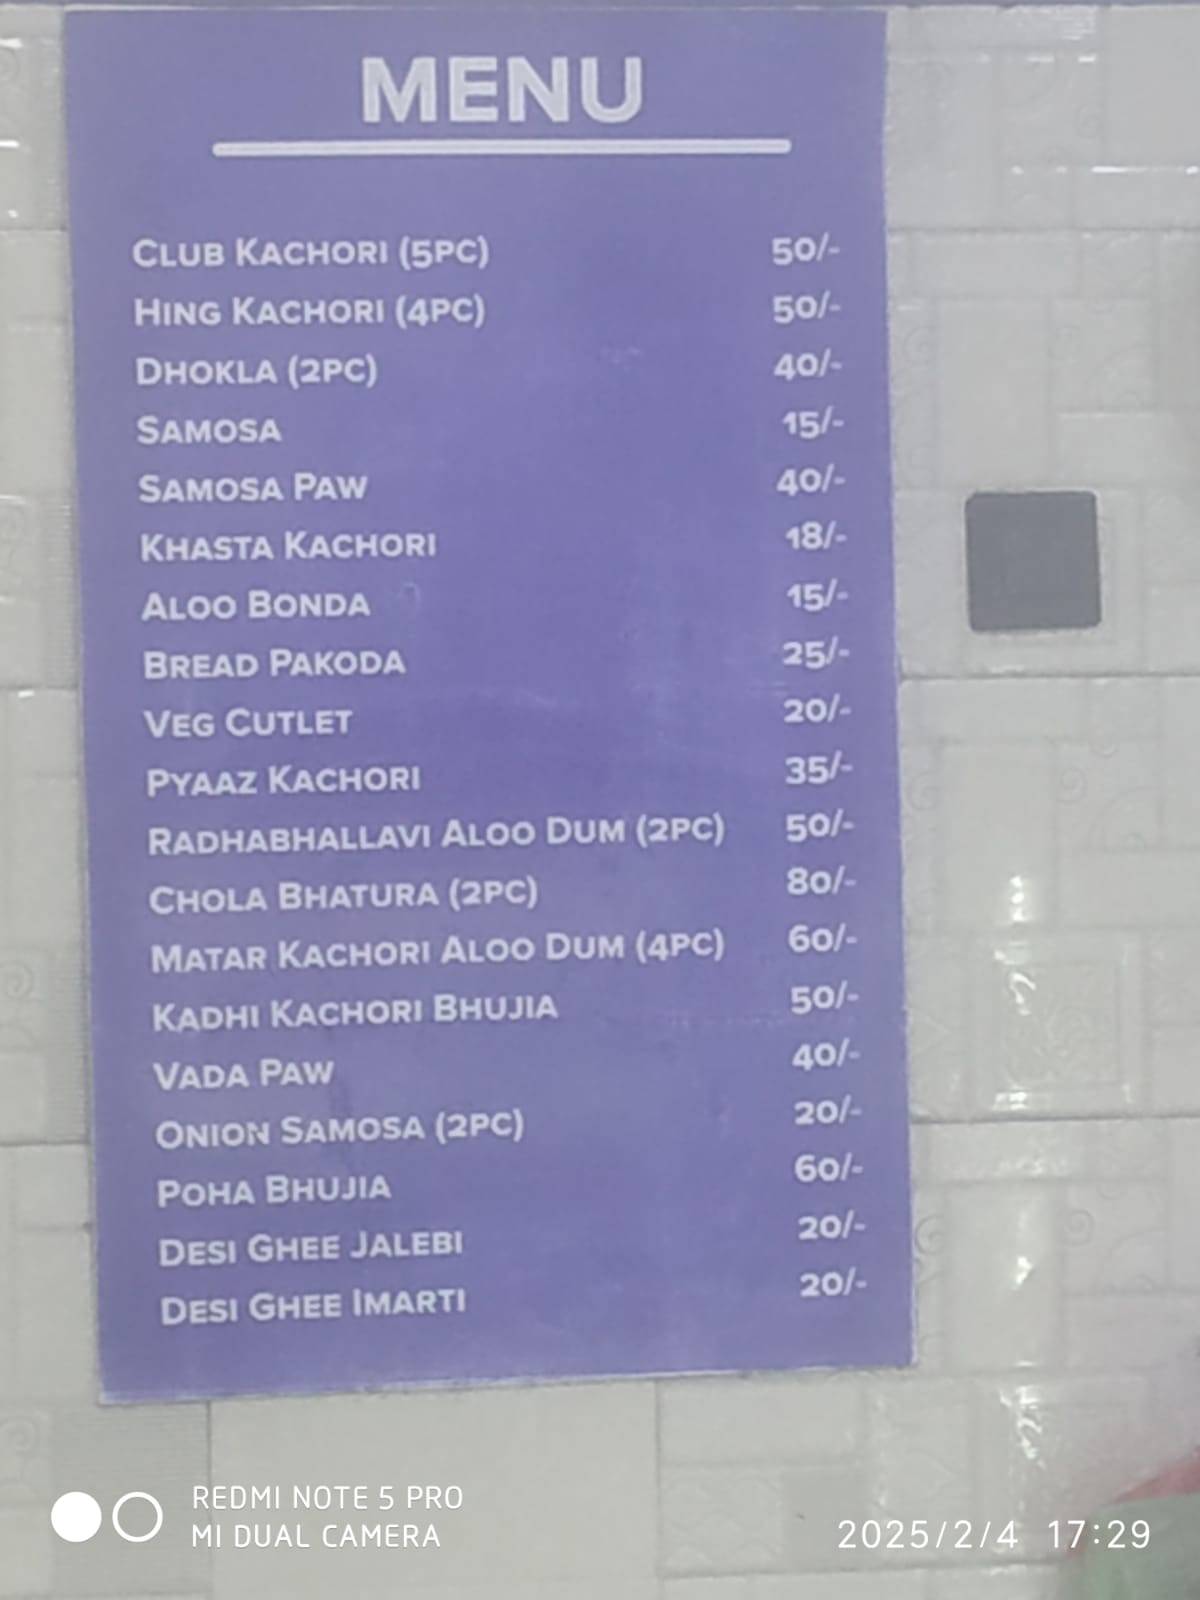 MENU
CLUB KACHORI (5PC) 50/-
HING KACHORI (4PC) 50/-
DHOKLA (2PC) 40/-
SAMOSA 15/-
SAMOSA PAW 40/-
KHASTA KACHORI 18/-
ALOO BONDA 15/-
BREAD PAKODA 25/-
VEG CUTLET 20/-
PYAAZ KACHORI 35/-
RADHABHALLAVI ALOO DUM (2PC) 50/-
CHOLA BHATURA (2PC) 80/-
MATAR KACHORI ALOO DUM (4PC) 60/-
KADHI KACHORI BHUJIA 50/-
VADA PAW 40/-
ONION SAMOSA (2PC) 20/-
POHA BHUJIA 60/-
DESI GHEE JALEBI 20/-
DESI GHEE IMARTI 20/-
REDMI NOTE 5 PRO
MI DUAL CAMERA
2025/2/4 17:29